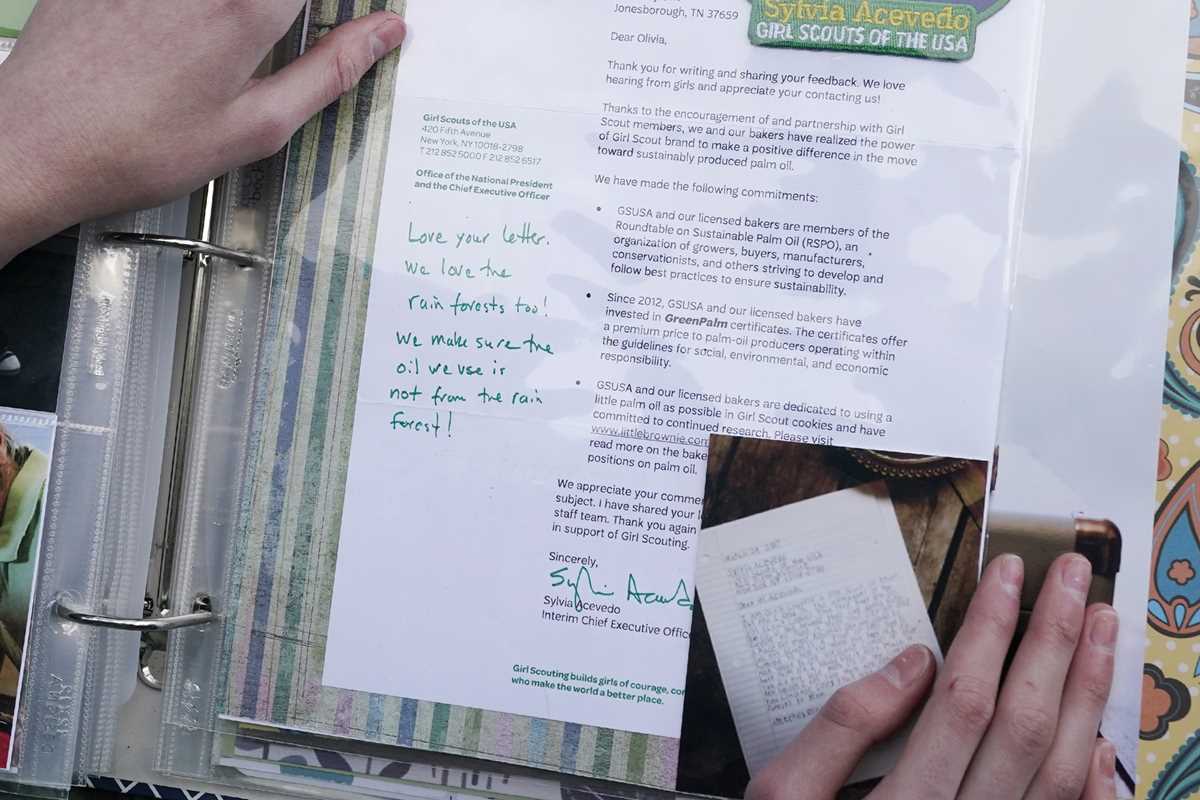 Jonesborough, TN 37659
Sylvia Acevedo
GIRL SCOUTS OF THE USA
Dear Olivia,
Thank you for writing and sharing your feedback. We love
hearing from girls and appreciate your contacting us!
Thanks to the encouragement of and partnership with Girl
Scout members, we and our bakers have realized the power
of Girl Scout brand to make a positive difference in the move
toward sustainably produced palm oil.
We have made the following commitments:
• GSUSA and our licensed bakers are members of the
Roundtable on Sustainable Palm Oil (RSPO), an
organization of growers, buyers, manufacturers,
conservationists, and others striving to develop and
follow best practices to ensure sustainability.
• Since 2012, GSUSA and our licensed bakers have
invested in GreenPalm certificates. The certificates offer
a premium price to palm-oil producers operating within
the guidelines for social, environmental, and economic
responsibility.
• GSUSA and our licensed bakers are dedicated to using a
little palm oil as possible in Girl Scout cookies and have
committed to continued research. Please visit
www.littlebrownie.com
read more on the bake
positions on palm oil.
We appreciate your comme
subject. I have shared your l
staff team. Thank you again
in support of Girl Scouting.
Sincerely,
Sylvia Acevedo
Sylvia Acevedo
Interim Chief Executive Office
Girl Scouting builds girls of courage, con
who make the world a better place.
Girl Scouts of the USA
420 Fifth Avenue
New York, NY 10018-2798
T 212 852 5000 F 212 852 6517
Office of the National President
and the Chief Executive Officer
Love your letter.
We love the
rain forests too!
We make sure the
oil we use is
not from the rain
forest!